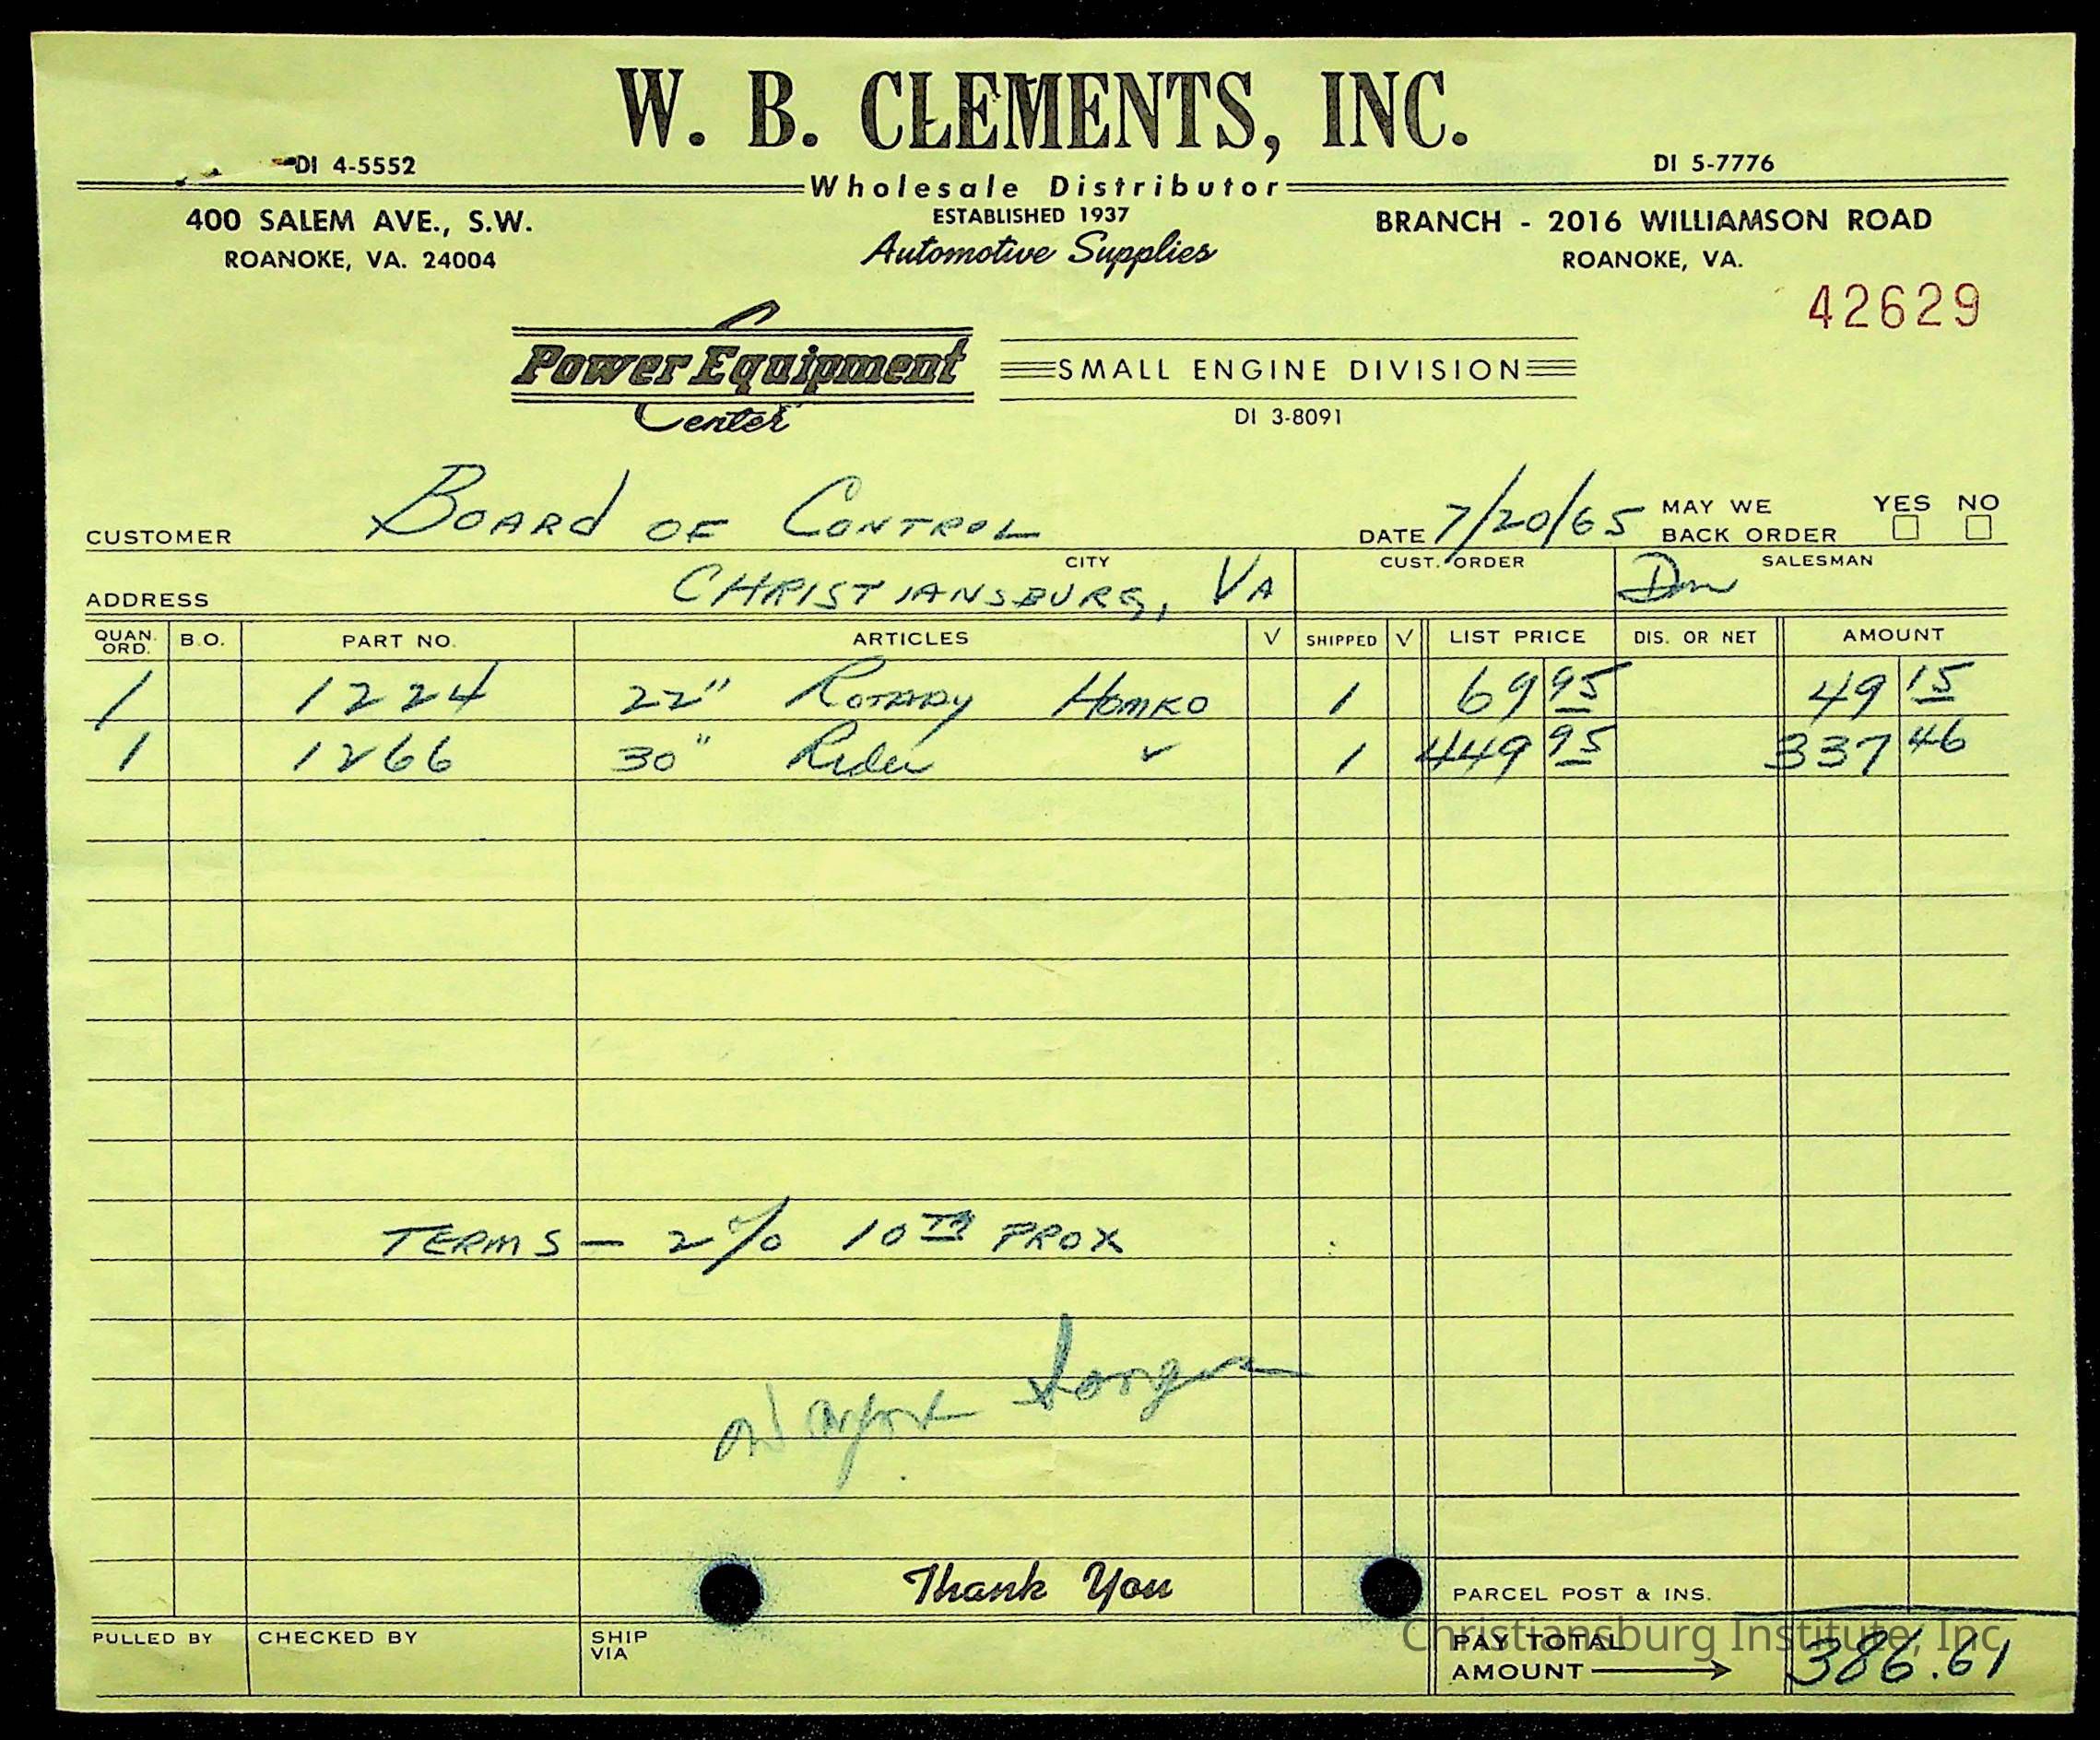 W. B. CLEMENTS, INC.
DI 4-5552
DI 5-7776
Wholesale Distributor
400 SALEM AVE., S.W.
ESTABLISHED 1937
BRANCH - 2016 WILLIAMSON ROAD
ROANOKE, VA. 24004
Automotive Supplies
ROANOKE, VA.
42629
Power Equipment
Center
SMALL ENGINE DIVISION
DI 3-8091
CUSTOMER BOARD OF CONTROL DATE 7/20/65 MAY WE BACK ORDER YES NO
ADDRESS CITY CHRISTIANSBURG, VA CUST. ORDER SALESMAN
QUAN. ORD. B.O. PART NO. ARTICLES V SHIPPED V LIST PRICE DIS. OR NET AMOUNT
1 1224 22" ROTARY HOMKO 1 69 95 49 15
1 1266 30" Rider ✓ 1 449 95 337 46
TERMS - 2% 10TH PROX
Thank You
PARCEL POST & INS.
PULLED BY CHECKED BY SHIP VIA PAY TOTAL AMOUNT 386.61
Christiansburg Institute, Inc